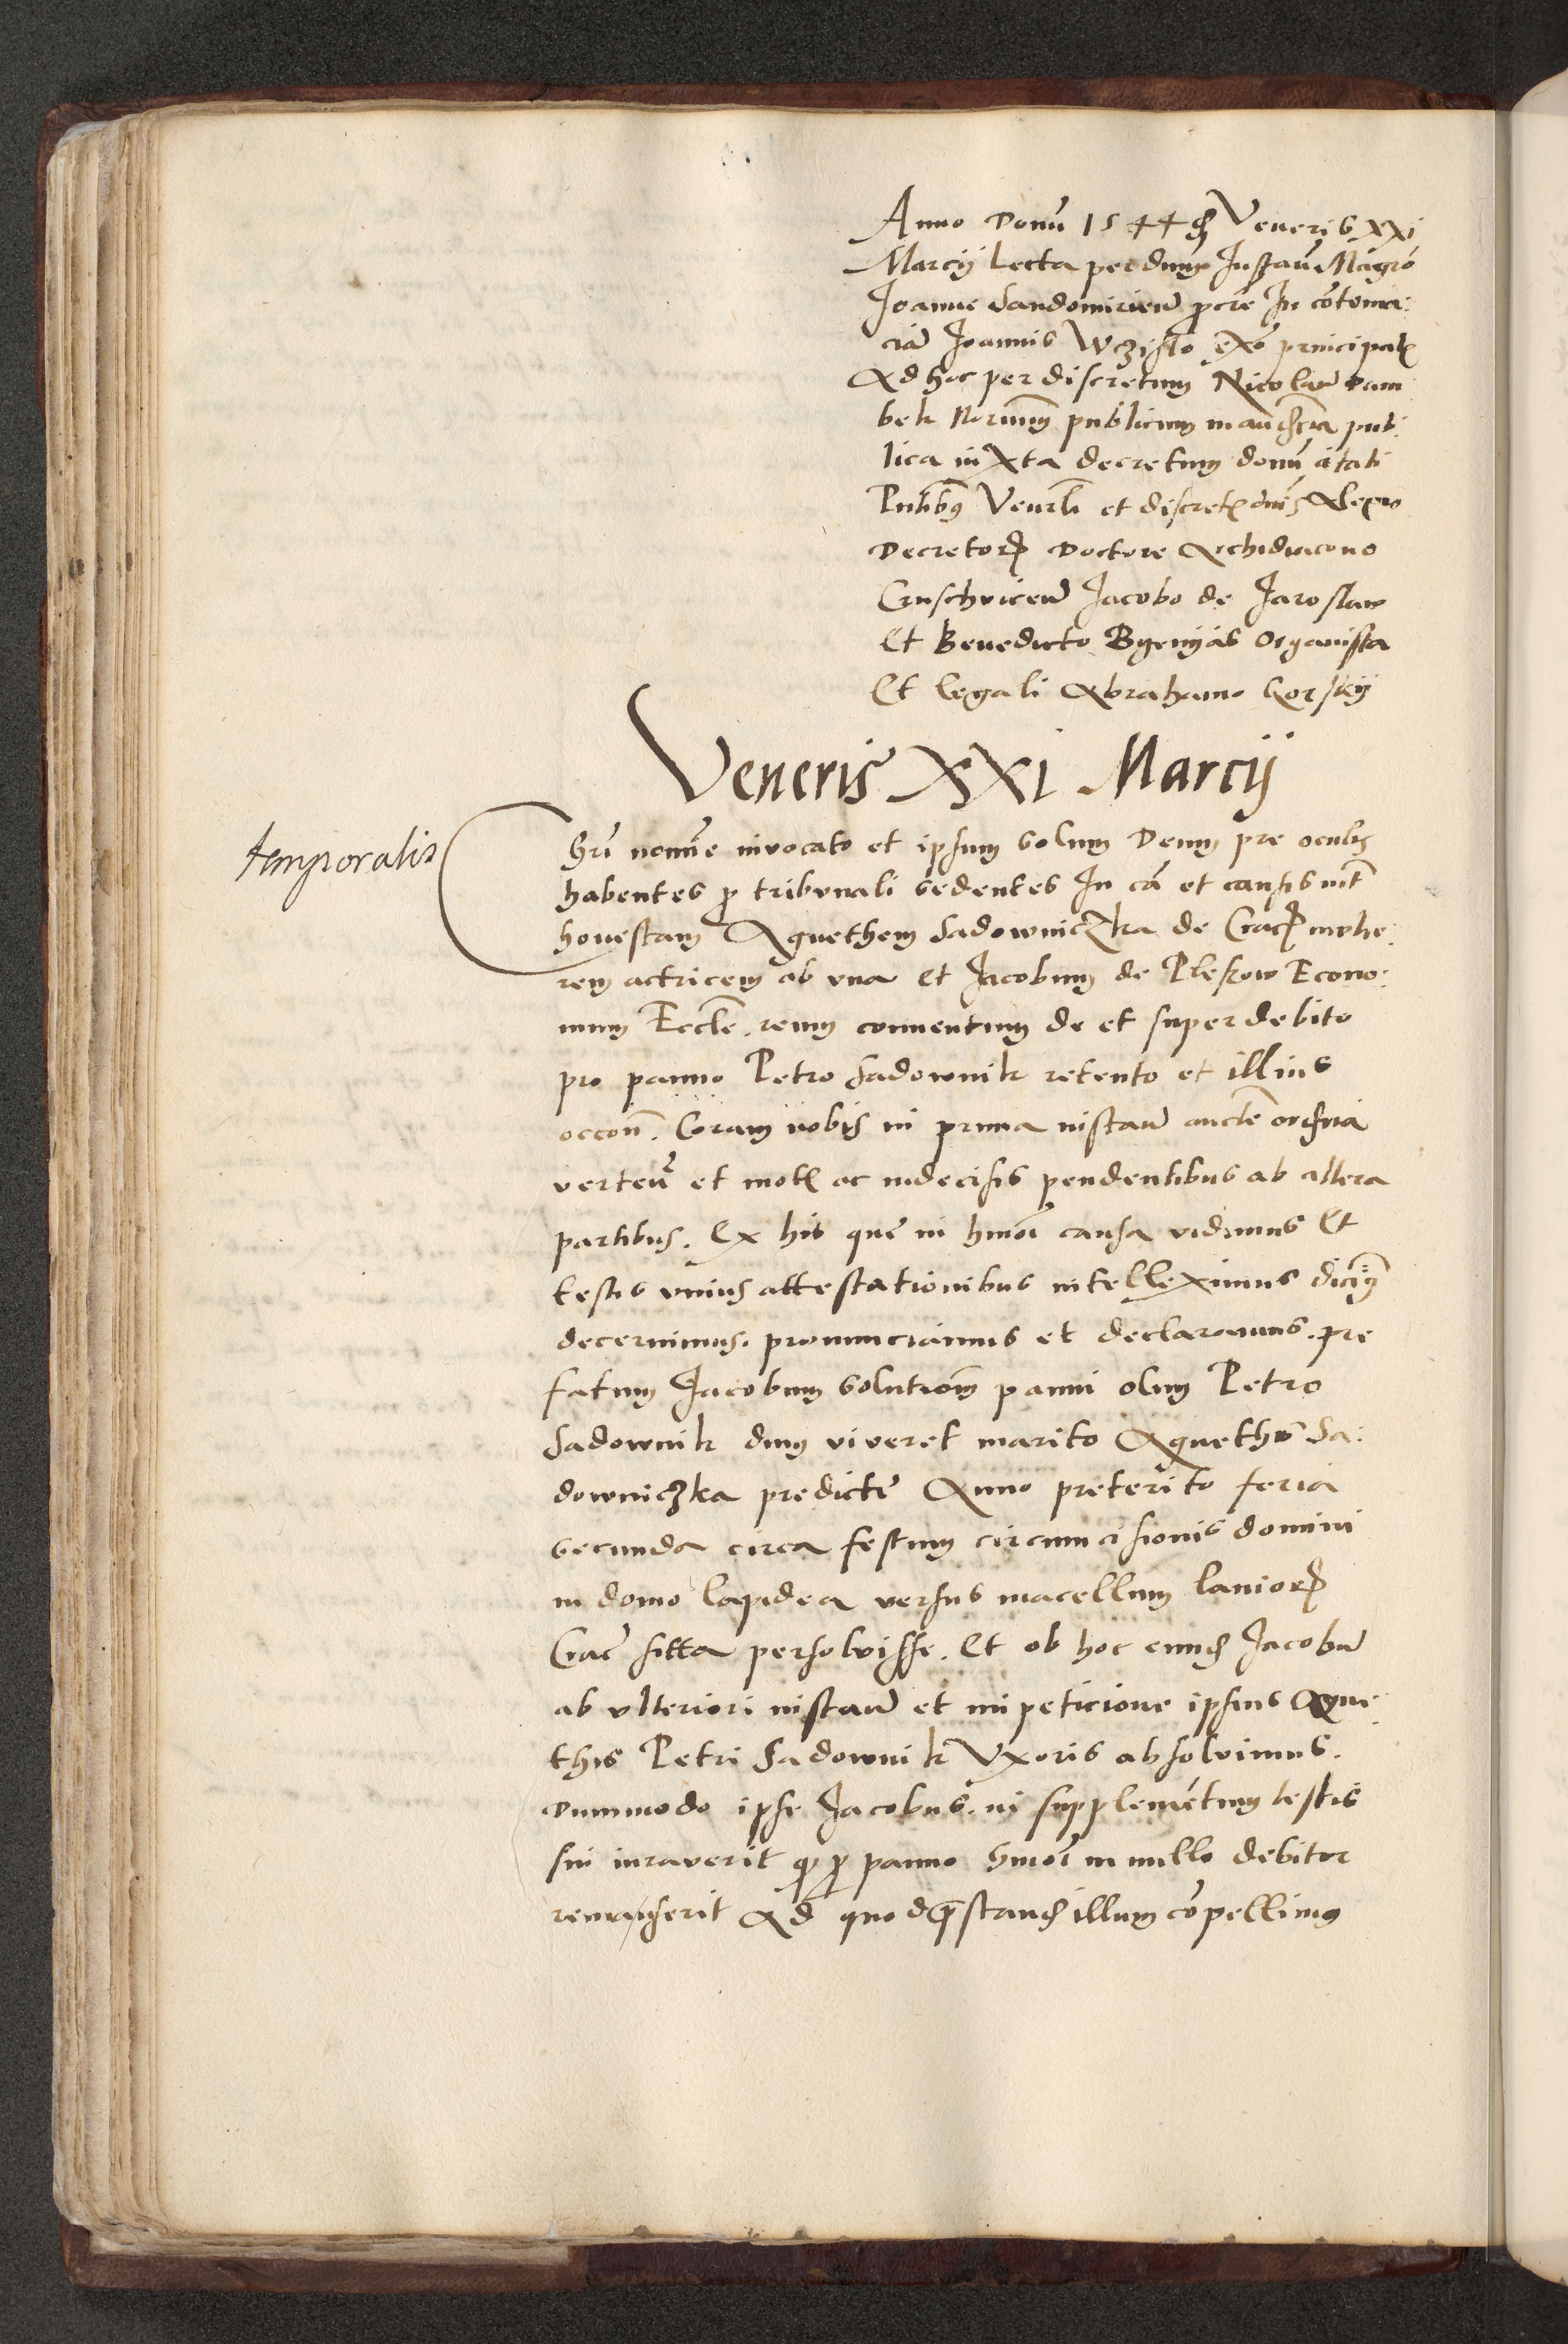 Anno Domī 1544 Veneris XXI
Marcij Lecta per dnm Instan Magro
Joanne Sandomirien procre In cōtuma:
ciā Joannis Wczislo principal
Ad hoc per discretum Nicolaū Dam
bek Norium publicum in audiencia pub:
lica iuxta decretum domī citati
Pntibus Venerli et discret dnis
Decretor Doctore Archidiacono
Cruschvicen Jacobo de Jaroslaw
Et Benedicto Organista
Et legali Abrahamo Gorskij
Veneris XXI Marcij
temporalis
Chri nomīe invocato et ipsum solum Deum pre oculis
habentes p tribunali sedentes In cā et causis int
honestam Agnethem Sadowniczka de Crac mulie:
rem actricem ab una Et Jacobum de Pleszow Econo:
mum Eccle. reum conventum de et super debito
pro panno Petro Sadownik retento et illius
occon. Coram nobis in prima instan aucte ordria
verten et mot ac indecisis pendentibus ab altera
partibus. Ex his quę in hmoi causa vidimus Et
testis unius attestationibus intelleximus dicimus
decernimus. pronunciamus et declaramus. pre
fatum Jacobum solutiōm panni olim Petro
Sadownik dum viveret marito Agnethis Sa:
downiczka predictę Anno preterito feria
secunda circa festum circumcisionis domini
in domo lapidea versus macellum lanior
Crac sitta persolvisse. Et ob hoc eund Jacobū
ab ulteriori instan et impeticione ipsius Agne:
this Petri Sadownik Uxoris absolvimus.
Dummodo ipse Jacobus. in supplemētum testis
sui iuraverit q p panno hmoi in nullo debitor
remanserit Ad quod prestand illum cōpellimus